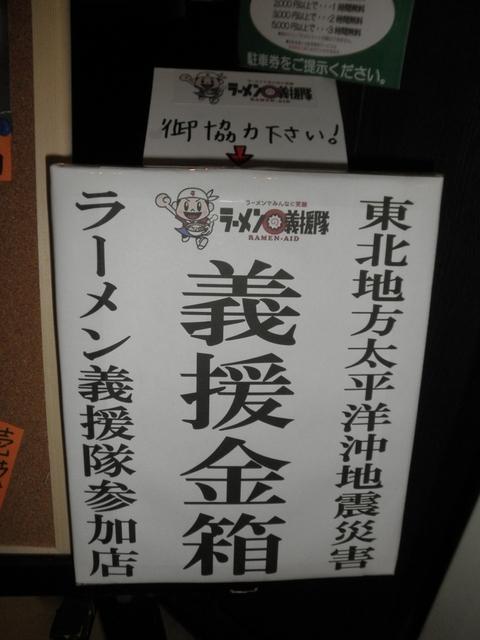 2,000円以上で・・・1時間無料
3,000円以上で・・・2時間無料
5,000円以上で・・・3時間無料
駐車券をご提示ください。
ラーメン義援隊
RAMEN-AID
御協力下さい!
ラーメンでみんなに笑顔
ラーメン義援隊
RAMEN-AID
東北地方太平洋沖地震災害
義援金箱
ラーメン義援隊参加店